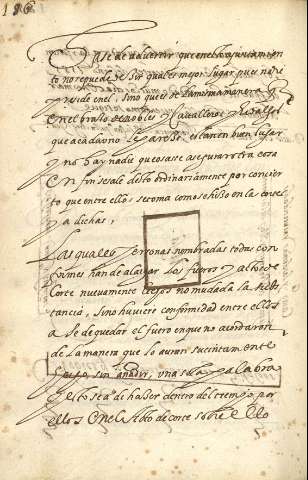 186
Hase de advertir que en el dho ayuntamien
to no se puede dezir qual es mejor lugar pues no se
preside en el, sino que es de la misma manera q
en el brasso de nobles y Cavalleros y hidalgos
que a cada uno le parese estar en buen lugar
y no hay nadie que osasse asegurar otra cosa
en fin se sale desto ordinariamente por concier
to que entre ellos se toma como se hiso en las cortes
ya dichas,
Las quales personas nombradas todas con
formes han de alabar los fueros y actos de
Corte nuevamente no mudada la subs
tancia, sino huviere conformidad entre ellos
a se de quedar el fuero en que no acordaron
de la manera que lo auran sucintamente
puesto, sin añadir, una sola palabra
y esto se a de hasser dentro del tiempo, por
ellos en el Acto de corte sobre ello